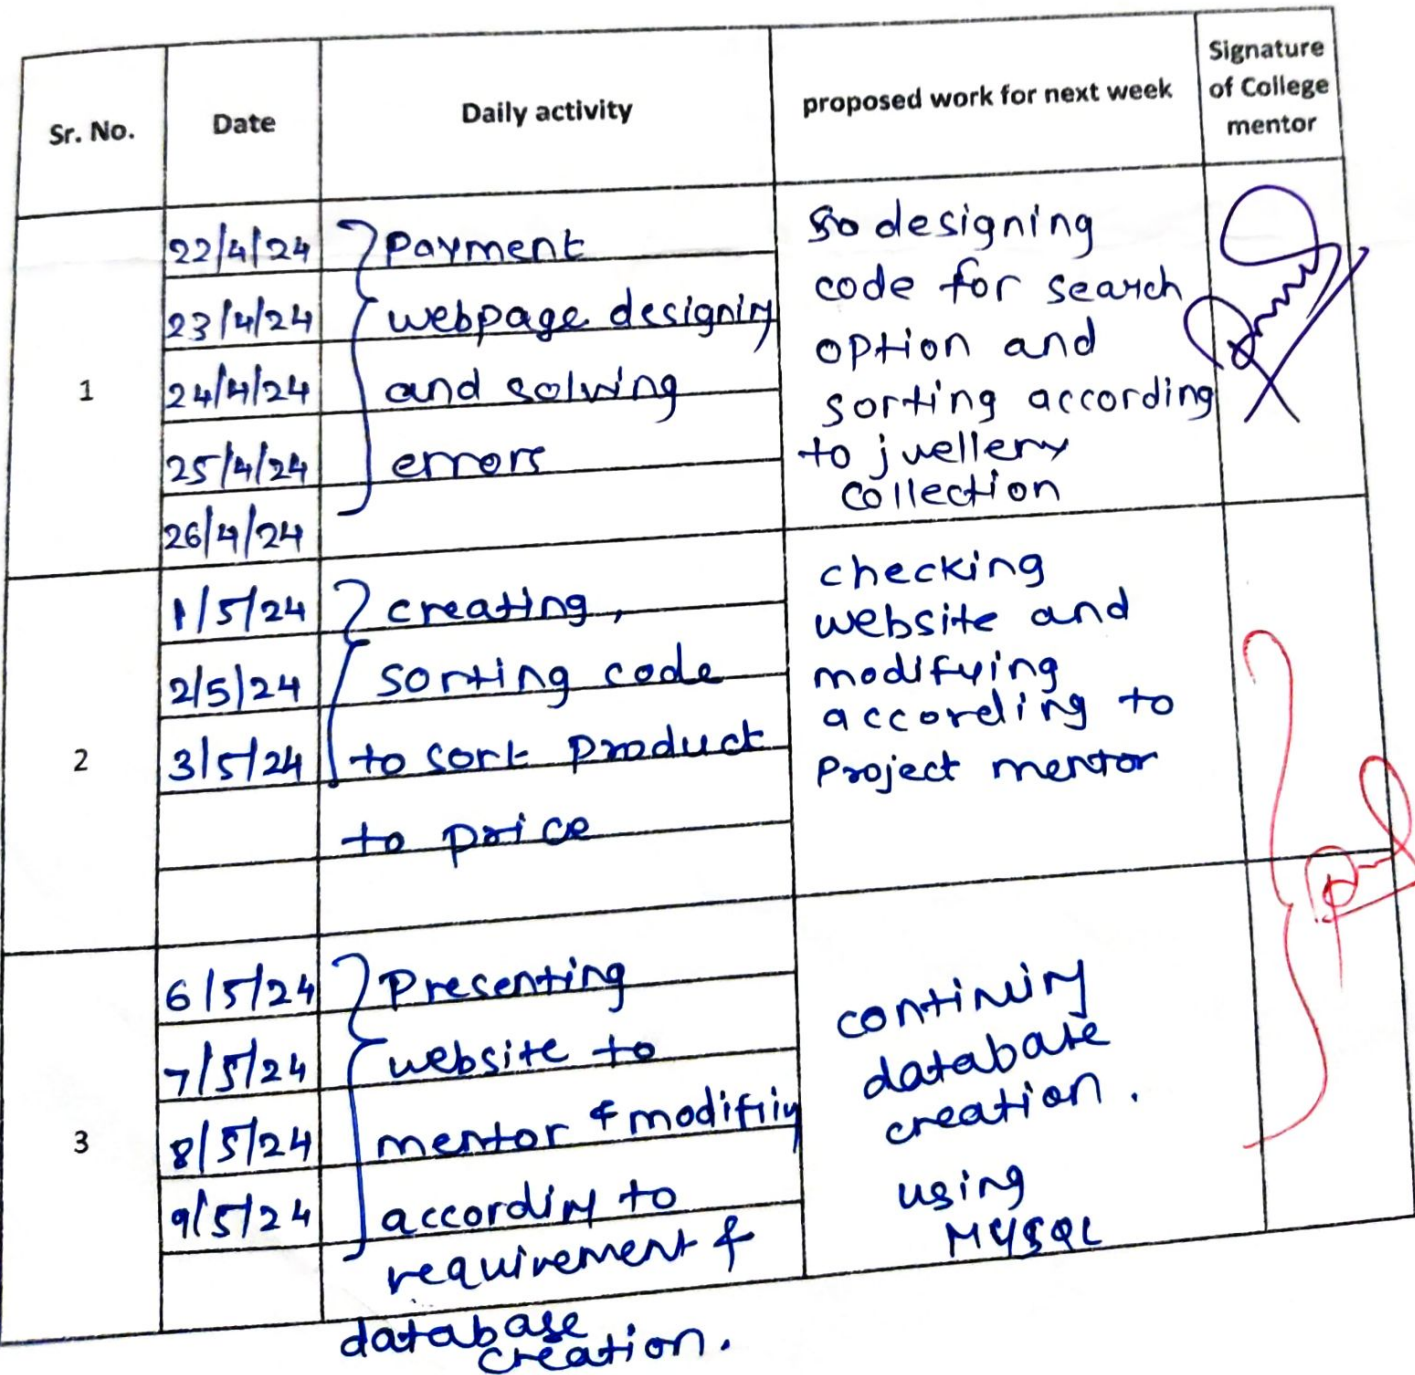 Sr. No. Date Daily activity proposed work for next week Signature of College mentor
1
22/4/24
23/4/24
24/4/24
25/4/24
26/4/24
Payment
webpage designing
and solving
errors
designing
code for search
option and
sorting according
to jwellery
collection
2
1/5/24
2/5/24
3/5/24
creating,
sorting code
to sort product
to price
checking
website and
modifying
according to
Project mentor
3
6/5/24
7/5/24
8/5/24
9/5/24
Presenting
website to
mentor & modifiing
according to
requirement &
database
creation.
continuing
database
creation.
using
MYSQL